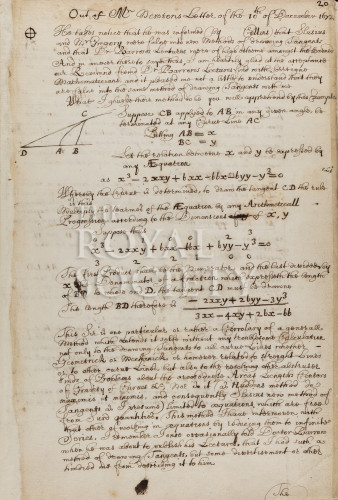 20
Out of Mr Newtons Letter of the 10th of December 1672
He takes notice that he was informed by Collers that Slusius
and Mr Gregory were fallen into new Methods of drawing Tangents
and that Dr Barrows Lectures were of high esteeme amongst the
And in answer thereto expresseth, I am heartily glad at the acceptance
our Reverend friend Dr Barrows Lectures finds with forreigne
Mathematicians and it pleased me not a little to understand that they
are fallen into the same method of drawing Tangents with me
What I guess their method to be you will apprehend by this Example
C
D A B
Suppose CB applyed to AB in any given angle be
terminated at any Curve Line AC
calling AB = x
BC = y
Let the relation between x and y be expressed by
any Æquation
as x³ − 2xxy + bxx − bbx + byy − y³ = 0
Whereby the Curve is determined, to draw the tangent CD the rule
is this
Multiply the termes of the Æquation by any Arithmeticall
Progression according to the Dimensions of x, y
Suppose thus
0 1 0 0 2 3
x³ − 2xxy + bxx − bbx + byy − y³ = 0
3 2 2 1 0 0
The first Product shall be the Numerator and the last divided by
x
of BD
The length BD therefore is −2xxy + 2byy − 3y³
3xx − 4xy + 2bx − bb
This Sr is one particular or rather a Corollary of a generall
Method which extends it selfe without any troublesome Calculation
not only to the drawing Tangents to all curve Lines whether
Geometrick or Mechanick or however related to streight Lines
or to other curve Lines but also to the resolving other abstruser
kinds of Problems about the crookedness Areas Lengths Centers
of Gravity of Curves &c. Nor is it as Huddens method de
maximis et minimis, and consequently Slusius new method of
Tangents as I presume limited to æquations which are free
from Surd quantities. This method I have interwoven with
that other of working in æquations by reducing them to infinite
Series. I remember I once occasionally told Doctor Barrow
when he was about to publish his Lectures, that I had such a
method of drawing Tangents, but some divertisment or other
hindred me from describing it to him
The
THE ROYAL SOCIETY